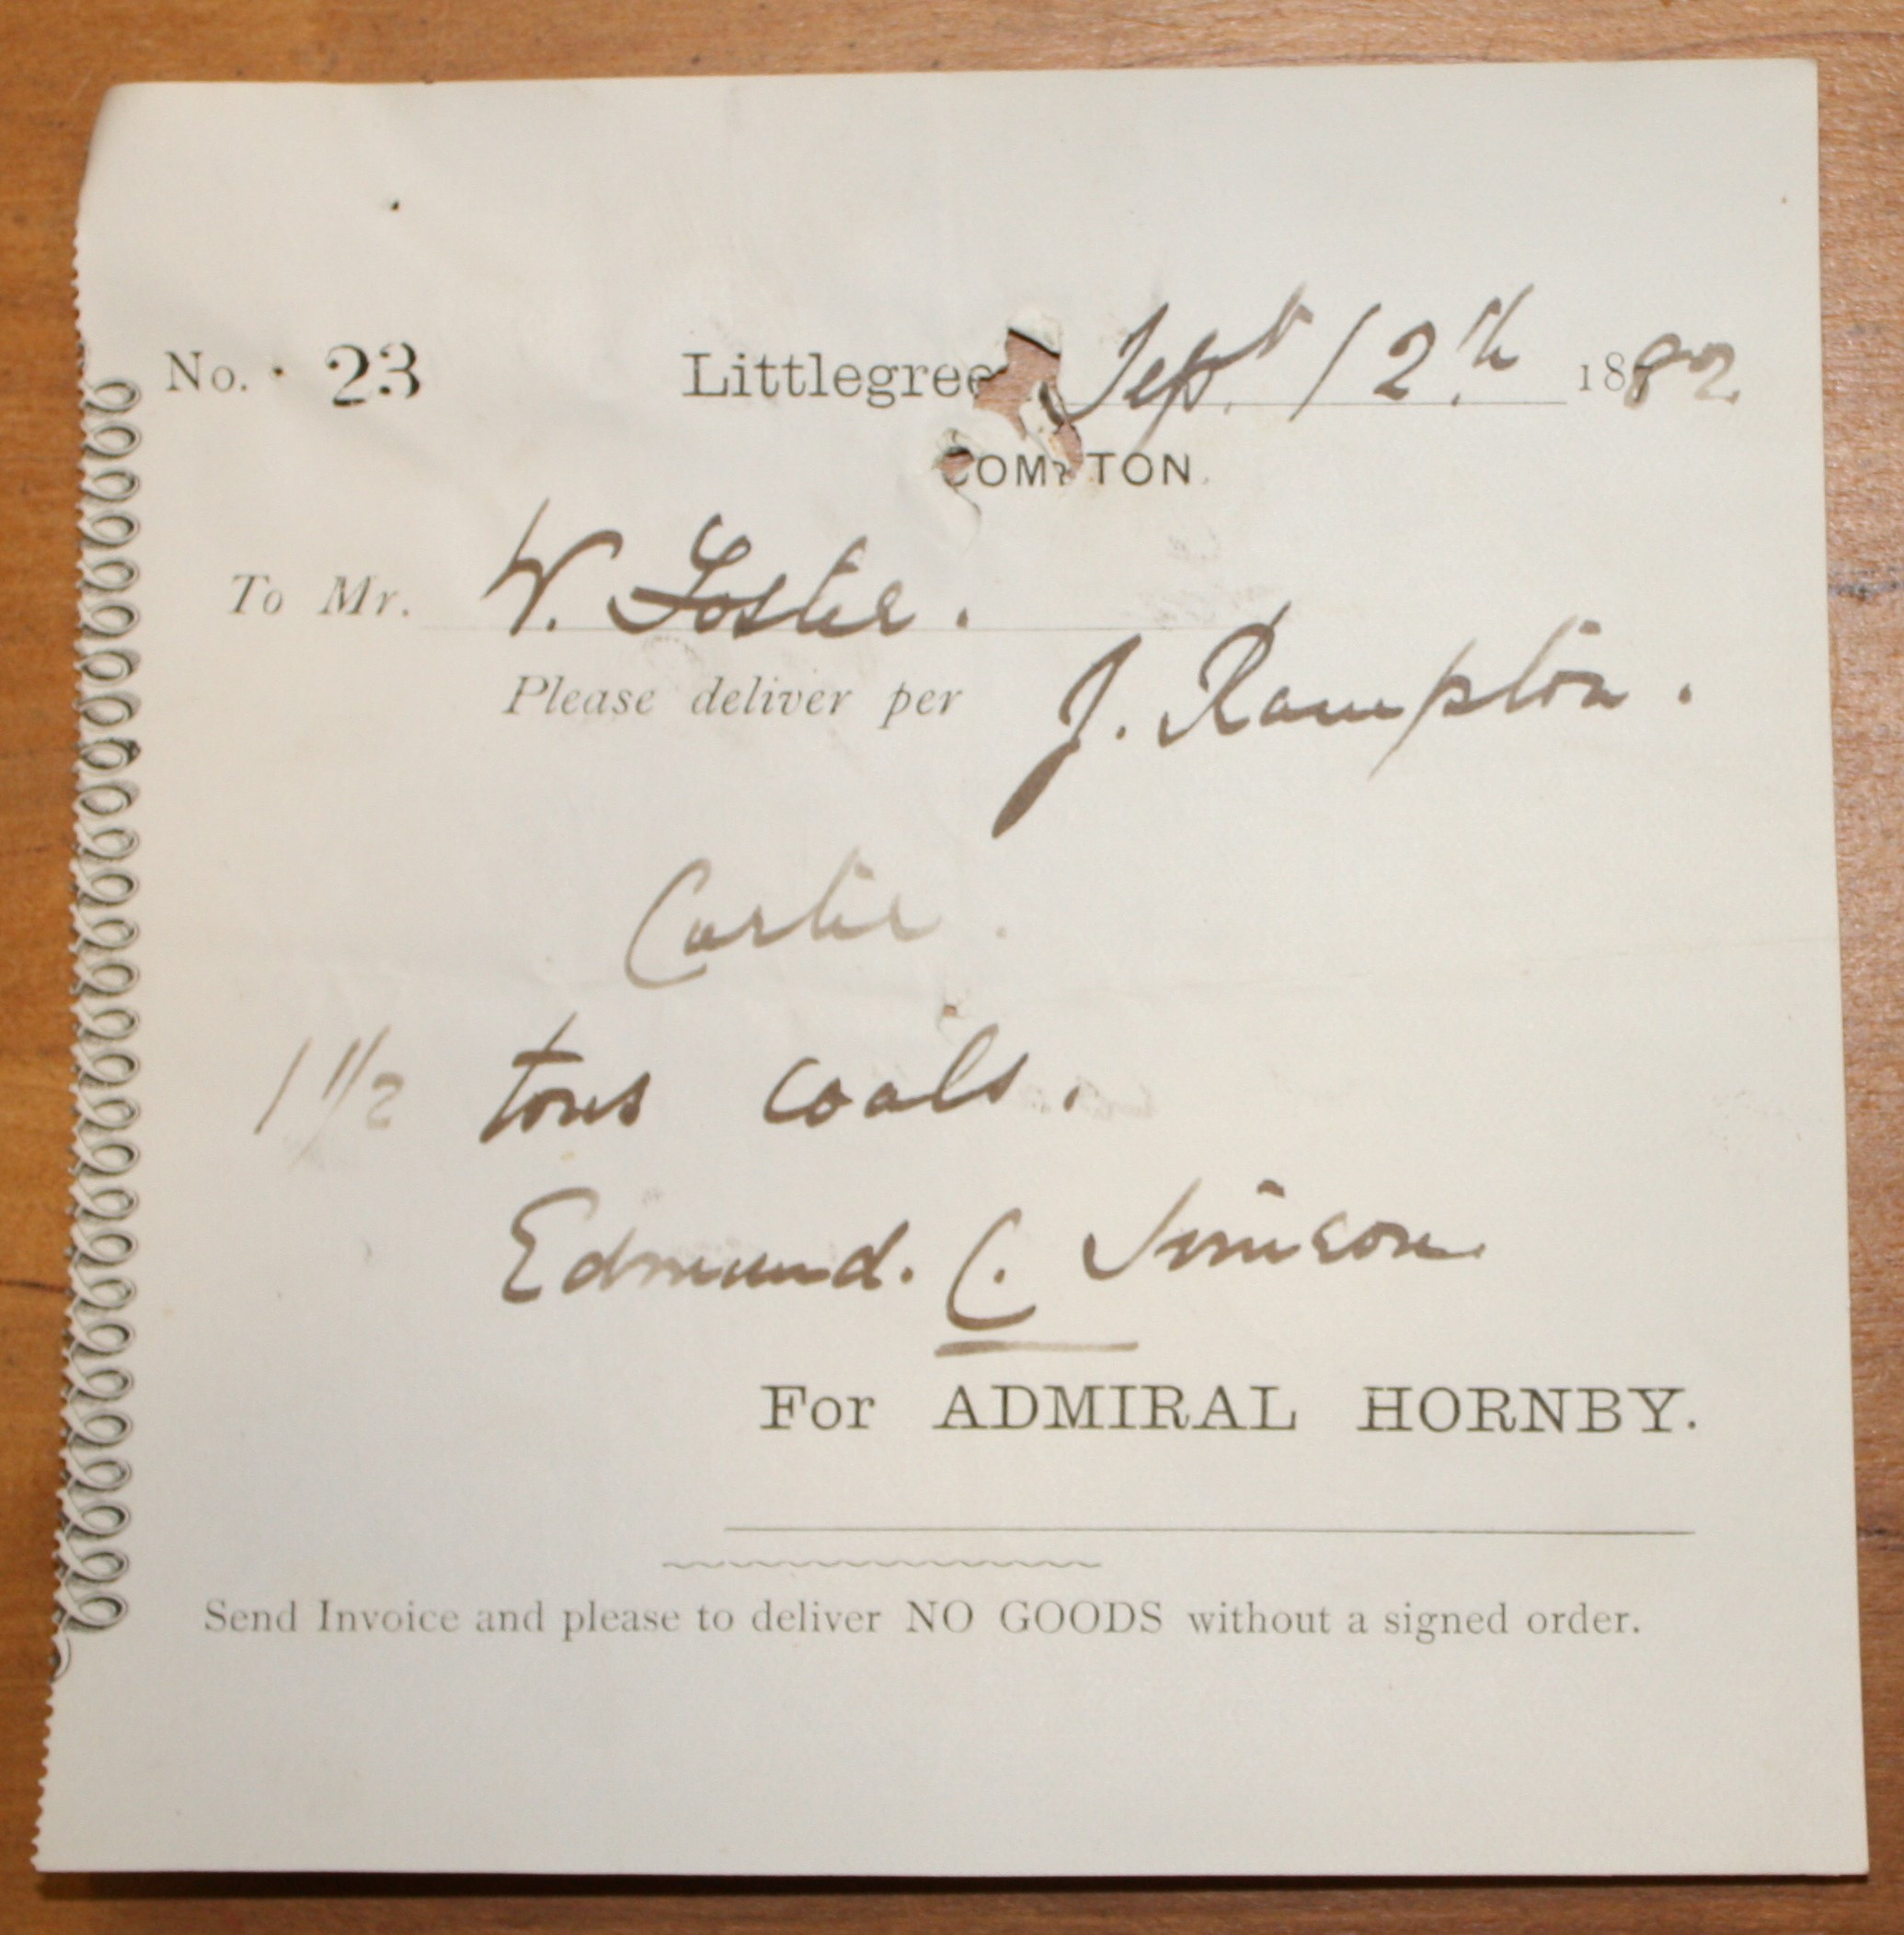 No. 23 Littlegree Sept 12th 1882
COMPTON.
To Mr. W. Foster.
Please deliver per J. Rampton.
Carter.
1 1/2 tons coals.
Edmund. C.
For ADMIRAL HORNBY.
Send Invoice and please to deliver NO GOODS without a signed order.